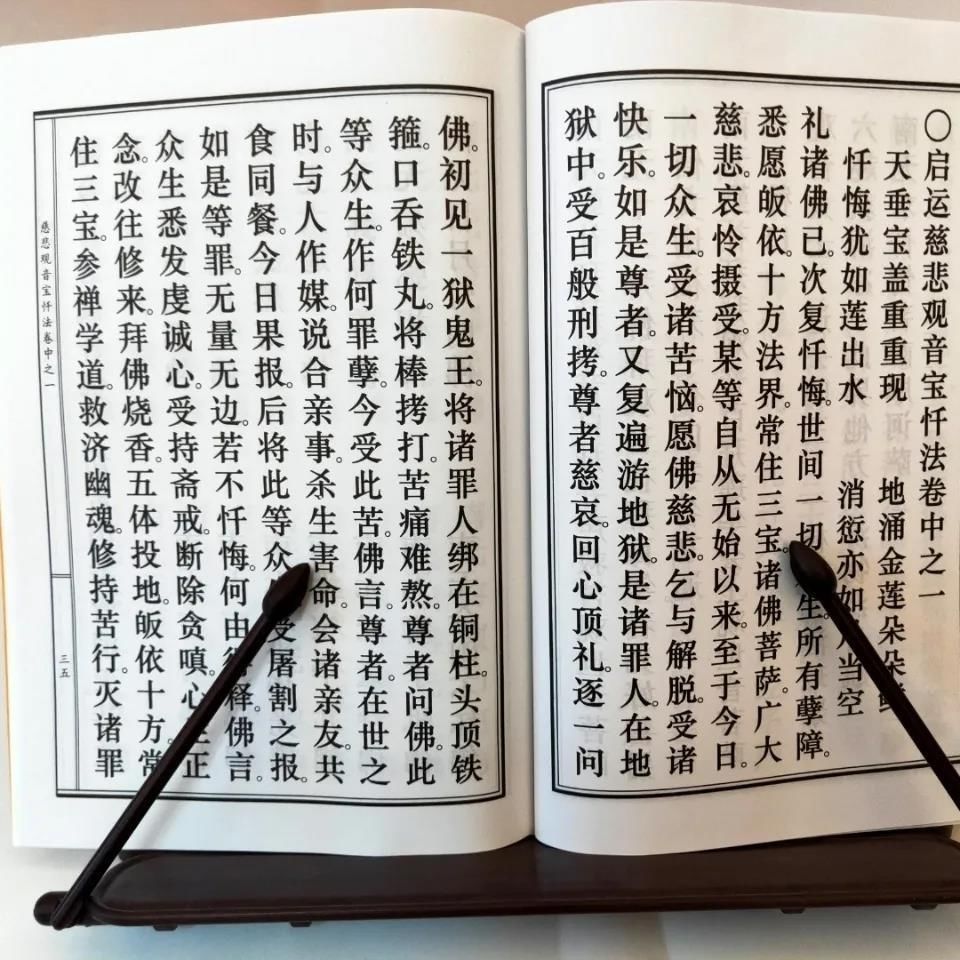 〇启运慈悲观音宝忏法卷中之一
天垂宝盖重重现 地涌金莲朵朵
忏悔犹如莲出水 消愆亦如 当空
礼诸佛已。次复忏悔。世间一切 生。所有孽障。
悉愿皈依。十方法界。常住三宝。诸佛菩萨。广大
慈悲。哀怜摄受。某等自从无始以来。至于今日。
一切众生。受诸苦恼。愿佛慈悲。乞与解脱。受诸
快乐。如是尊者。又复遍游地狱。是诸罪人。在地
狱中。受百般刑拷。尊者慈哀。回心顶礼。逐一问
佛。初见一狱鬼王。将诸罪人绑在铜柱。头顶铁
箍。口吞铁丸。将棒拷打。苦痛难熬。尊者问佛。此
等众生。作何罪孽。今受此苦。佛言。尊者。在世之
时。与人作媒。说合亲事。杀生害命。会诸亲友。共
食同餐。今日果报。后将此等众 受屠割之报。
如是等罪。无量无边。若不忏悔。何由 释。佛言。
众生悉发虔诚心。受持斋戒。断除贪嗔。心 正
念。改往修来。拜佛烧香。五体投地。皈依十方。常
住三宝。参禅学道。救济幽魂。修持苦行。灭诸罪
慈悲观音宝忏法卷中之一
三五